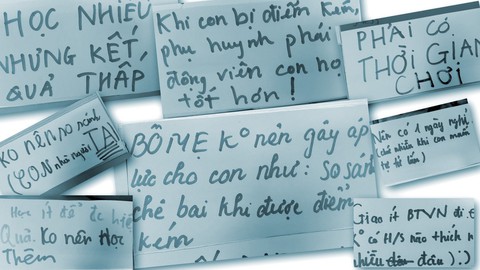 HỌC NHIỀU
NHƯNG KẾT
QUẢ THẤP
Khi con bị điểm kém,
phụ huynh phải
động viên con họ
tốt hơn !
PHẢI CÓ
THỜI GIAN
CHƠI
KO nên so sánh
CON nhà người TA
BỐ MẸ Kº nên gây áp
lực cho con như : so sán
chê bai khi được điểm
kém
Nên có 1 ngày nghỉ
(chỉ nhiều khi con muốn
tự tử lắm)
Học ít để ốc hiệ
Quả. Ko nên Học
Thêm
Giao ít BTVN đi.
Kº có H/S nào thích
nhiều đâu ) :)